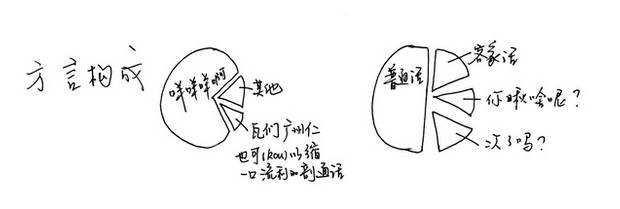 方言构成
咩咩咩啊
其他
瓦们广州仁
也可(kou)以缩
一口流利的剖通话
普通话
客家话
你瞅啥呢？
次了吗？